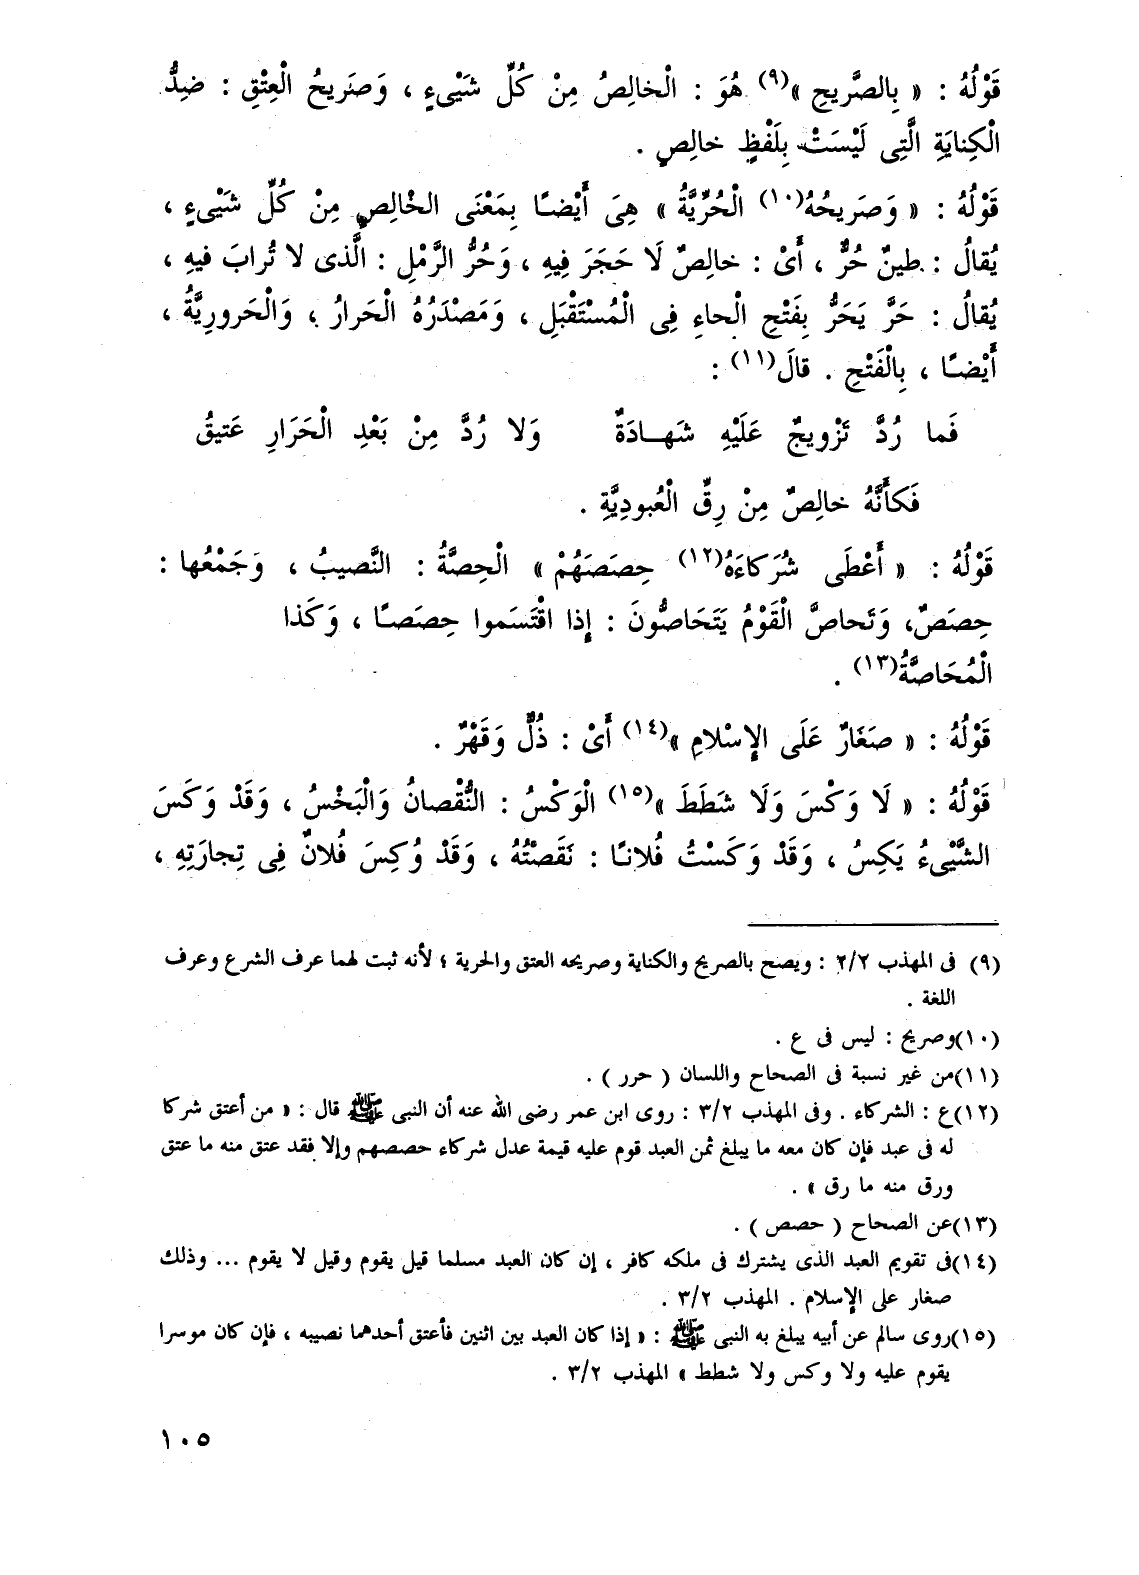 قَوْلُهُ : « بِالصَّريحِ »(٩) هُوَ : الْخالِصُ مِنْ كُلِّ شَيْىءٍ ، وَصَريحُ الْعِتْقِ : ضِدُّ
الْكِنايَةِ الَّتِى لَيْسَتْ بِلَفْظٍ خالِصٍ .
قَوْلُهُ : « وَصَريحُهُ(١٠) الْحُرِّيَّةُ » هِىَ أَيْضًا بِمَعْنَى الخْالِصِ مِنْ كُلِّ شَيْىءٍ ،
يُقالُ : طينٌ حُرٌّ ، أَىْ : خالِصٌ لَا حَجَرَ فِيهِ ، وَحُرُّ الرَّمْلِ : الَّذى لا تُرابَ فيهِ ،
يُقالُ : حَرَّ يَحَرُّ بِفَتْحِ الْحاءِ فِى الْمُسْتَقْبَلِ ، وَمَصْدَرُهُ الْحَرارُ ، وَالْحَرورِيَّةُ ،
أَيْضًا ، بِالْفَتْحِ . قالَ(١١) :
فَما رُدَّ تَزْويجٌ عَلَيْهِ شَهادَةٌ وَلا رُدَّ مِنْ بَعْدِ الْحَرَارِ عَتيقُ
فَكأَنَّهُ خالِصٌ مِنْ رِقِّ الْعُبودِيَّةِ .
قَوْلُهُ : « أَعْطَى شُرَكاءَهُ(١٢) حِصَصَهُمْ » الْحِصَّةُ : النَّصيبُ ، وَجَمْعُها :
حِصَصٌ، وَتَحاصَّ الْقَوْمُ يَتَحَاصُّونَ : إِذا اقْتَسَموا حِصَصًا ، وَكَذا
الْمُحَاصَّةُ(١٣) .
قَوْلُهُ : « صَغَارٌ عَلَى الإِسْلامِ »(١٤) أَىْ : ذُلٌّ وَقَهْرٌ .
قَوْلُهُ : « لَا وَكْسَ وَلَا شَطَطَ »(١٥) الْوَكْسُ : النُّقْصانُ وَالْبَخْسُ ، وَقَدْ وَكَسَ
الشَّيْىءُ يَكِسُ ، وَقَدْ وَكَسْتُ فُلانًا : نَقَصْتُهُ ، وَقَدْ وُكِسَ فُلانٌ فِى تِجارَتِهِ ،
(٩) فى المهذب ٢/٢ : ويصح بالصريح والكناية وصريحه العتق والحرية ؛ لأنه ثبت لهما عرف الشرع وعرف
اللغة .
(١٠)وصريح : ليس فى ع .
(١١)من غير نسبة فى الصحاح واللسان ( حرر ) .
(١٢)ع : الشركاء . وفى المهذب ٣/٢ : روى ابن عمر رضى الله عنه أن النبى ﷺ قال : « من أعتق شركا
له فى عبد فإن كان معه ما يبلغ ثمن العبد قوم عليه قيمة عدل شركاء حصصهم وإلا فقد عتق منه ما عتق
ورق منه ما رق » .
(١٣)عن الصحاح ( حصص ) .
(١٤)فى تقويم العبد الذى يشترك فى ملكه كافر ، إن كان العبد مسلما قيل يقوم وقيل لا يقوم ... وذلك
صغار على الإسلام . المهذب ٣/٢ .
(١٥)روى سالم عن أبيه يبلغ به النبى ﷺ : « إذا كان العبد بين اثنين فأعتق أحدهما نصيبه ، فإن كان موسرا
يقوم عليه ولا وكس ولا شطط » المهذب ٣/٢ .
١٠٥